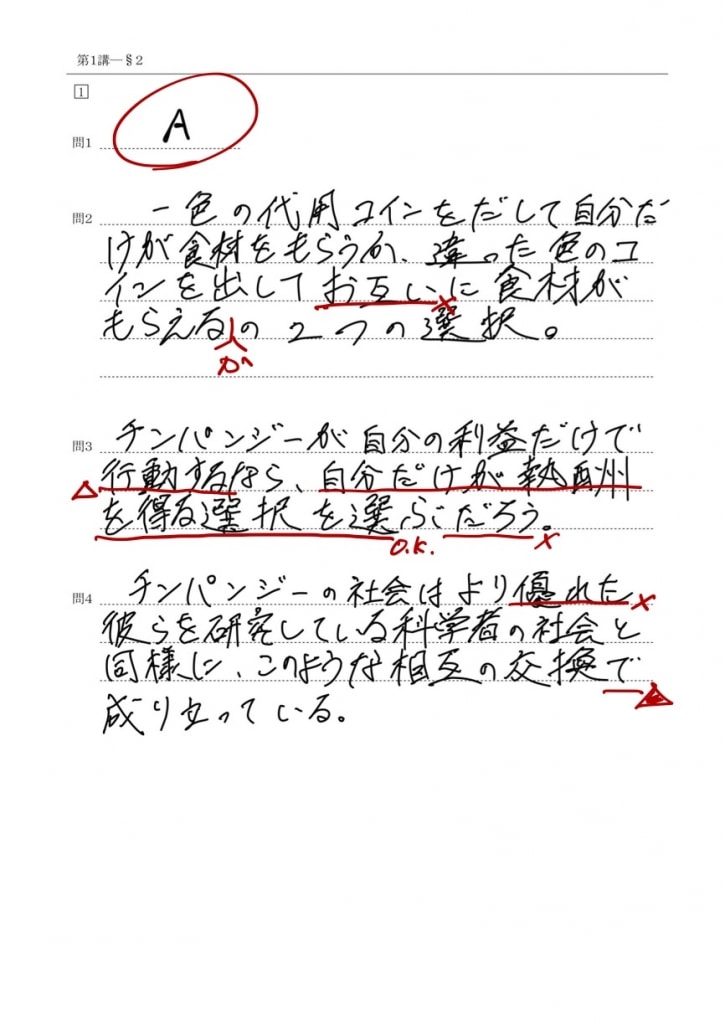 第1講―§2
1
問1 A
問2 一色の代用コインをだして自分だ
けが食材をもらうか、違った色のコ
インを出してお互いに食材が
×
もらえるの2つの選択。
か
問3 チンパンジーが自分の利益だけで
△ 行動するなら、自分だけが執酬
を得る選択を選ぶだろう。
O.K. ×
問4 チンパンジーの社会はより優れた ×
彼らを研究している科学者の社会と
同様に、このような相互の交換で
△
成り立っている。